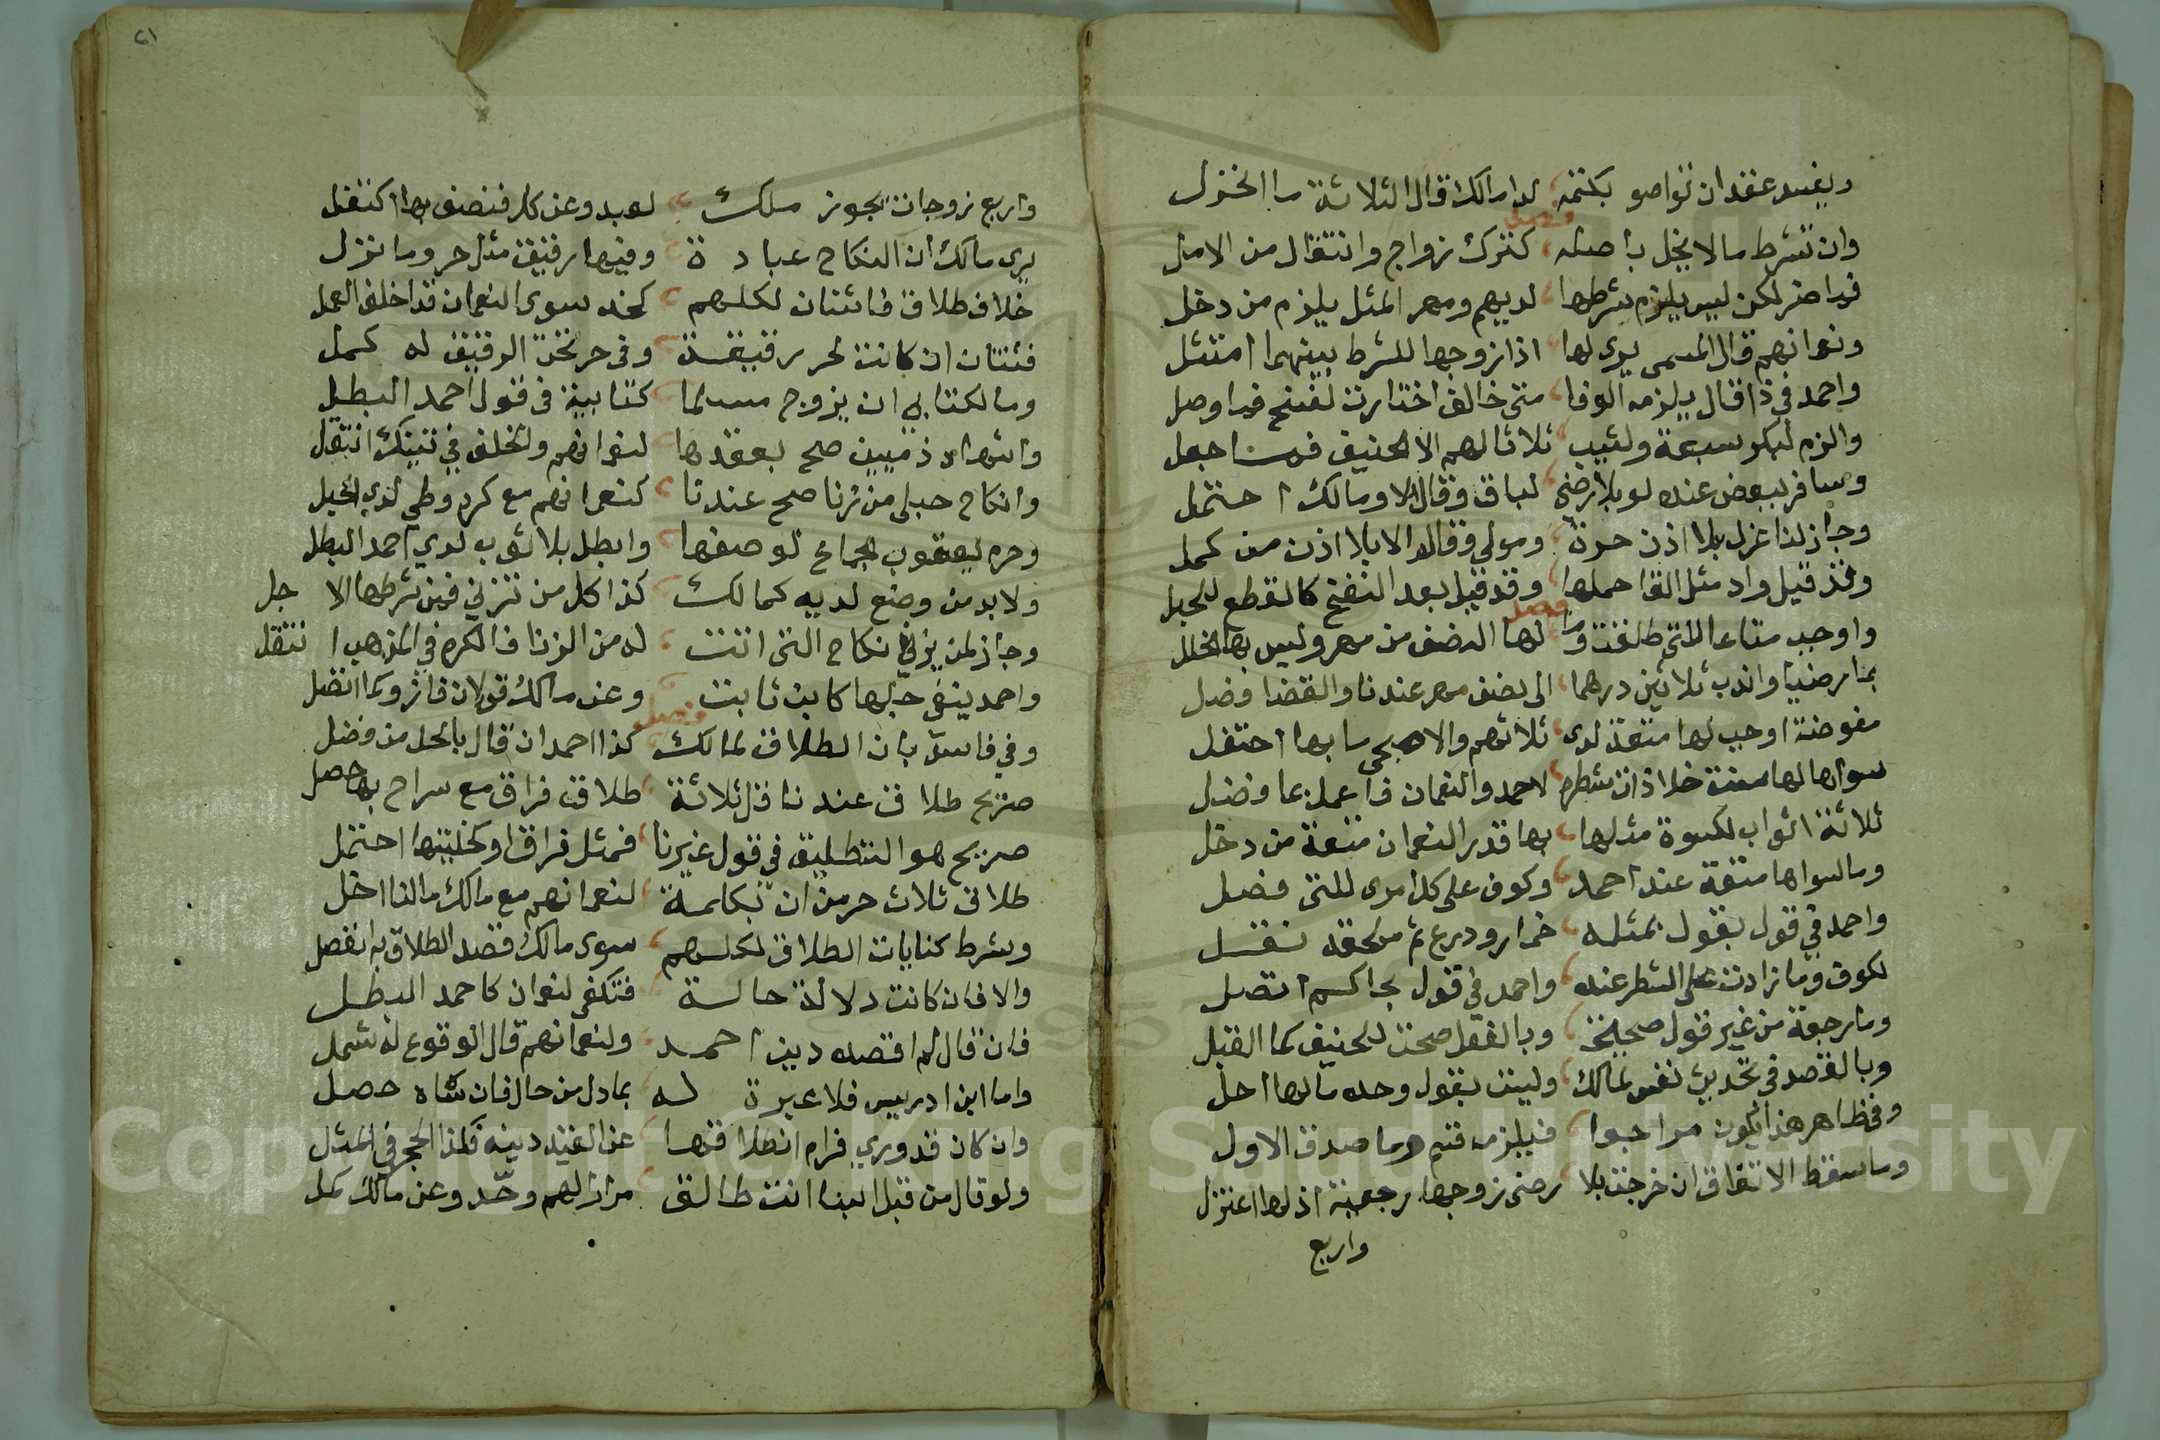 ويفسد عقد ان تواصو بكتمه لدا مالك قال الثلاثة ما انخزل
فصل
وان تشرط ما لا يخل باصله كترك زواج وانتقال من الامل
فما ضر لكن ليس يلزم شرطها لديهم ومهر المثل يلزم من دخل
ونعمانهم قال المسمى يرى لها اذا زوجها للشرط بينهما امتثل
واحمد في ذا قال يلزمه الوفا متى خالف اختارت لفسخ فما وصل
والزم لبكر سبعة ولثيب ثلاثا لهم الا الحنيف جعل
وسافر ببعض عنده لو بلا رضى لباق وقال لا ومالك احتمل
وجاز لنا عزل بلا اذن حرة ومولى وقالوا لا بلا اذن من كمل
وقد قيل واد مثل القا حملها وقد قيل بعد النفخ كالقطع للحبل
فصل
واوجب متاعا للتي طلقت وما لها النصف من مهر وليس بها الخلل
بما رضيا واندب ثلاثين درهما الى نصف مهر عندنا والقضا فضل
مفوضة اوجب لها متعة لدى ثلاثهم والاصبحى ما بها احتفل
سواها لها سنت خلا ذات شطره لاحمد والنعمان فاعمل بما فضل
ثلاثة اثواب لكسوة مثلها بها قدر النعمان متعة من دخل
وما لسواها متعة عند احمد وكوف على كل امرى للتي فضل
واحمد في قول يقول بمثله خمار ودرع ثم ملحقة نقل
لكوف وما زادت على الشطر عنده واحمد في قول بحاكم اتصل
وما رجعة من غير قول صحيحة وبالفعل صحت للحنيف كما القبل
وبالقصد في تحديث نفس لمالك وليت بقول وحده مالها احل
وفي ظاهر هذا يكون مراجعا فيلزمه قسم وما صدق الاول
وما سقط الانفاق ان خرجت بلا رضى زوجها رجعية اذ لها اعتزل
واربع
٢١
واربع زوجات يجوز ملك لعبد وعن كل فنصف بها اكتفل
يرى مالك ان النكاح عبادة وفيها رقيق مثل حر وما نزل
خلاف طلاق فاثنتان لكلهم كحد سوى النعمان قد اخلف العمل
فثنتان ان كانت لحر رقيقة وفي حر تحت الرقيق له كمل
وما لكتابي ان يزوج مسلما كتابية في قول احمد البطل
واشهاد ذميين صح بعقدها لنعمانهم والخلف في تينك انتقل
وانكاح حبلى من زنا صح عندنا كنعمانهم مع كره وطي لدى الحبل
وحرم ليعقوب الجماع لوصفها وابطل بلا ثوب لدى احمد البطل
ولا بد من وضع لديه كمالك كذا كل من تزني فمن شرطها الاجل
وجاز لمن يزني نكاح التى انتت له من الزنا فالكره في المذهب انتقل
واحمد ينفى حلها كابن ثابت وعن مالك قولان فاثر وكما اتصل
فصل
وفي فاسد بان الطلاق لمالك كذا احمد ان قال بالحل من فضل
صريح طلاق عندنا قل ثلاثة طلاق فراق مع سراح بها حصل
صريح هو التطليق في قول غيرنا فمثل فراق او كخليتها احتمل
طلاق ثلاث حرمن ان بكلمة لنعمانهم مع مالك ما لنا اخل
وشرط كنايات الطلاق لكلهم سوى مالك قصد الطلاق به انفصل
والا فان كانت دلالة حالة فتكفى لنعمان كاحمد البطل
فان قال لم اقصده دين احمد ولنعمانهم قال الوقوع له شمل
واما ابن ادريس فلا عبرة له بما دل من حال فان شاه حصل
وان كان قد وري فرام انطلاقها عن القيد دينه كذا الحجر في المثل
ولو قال من قبل البنا انت طالق مرارا لهم وحد وعن مالك كمل